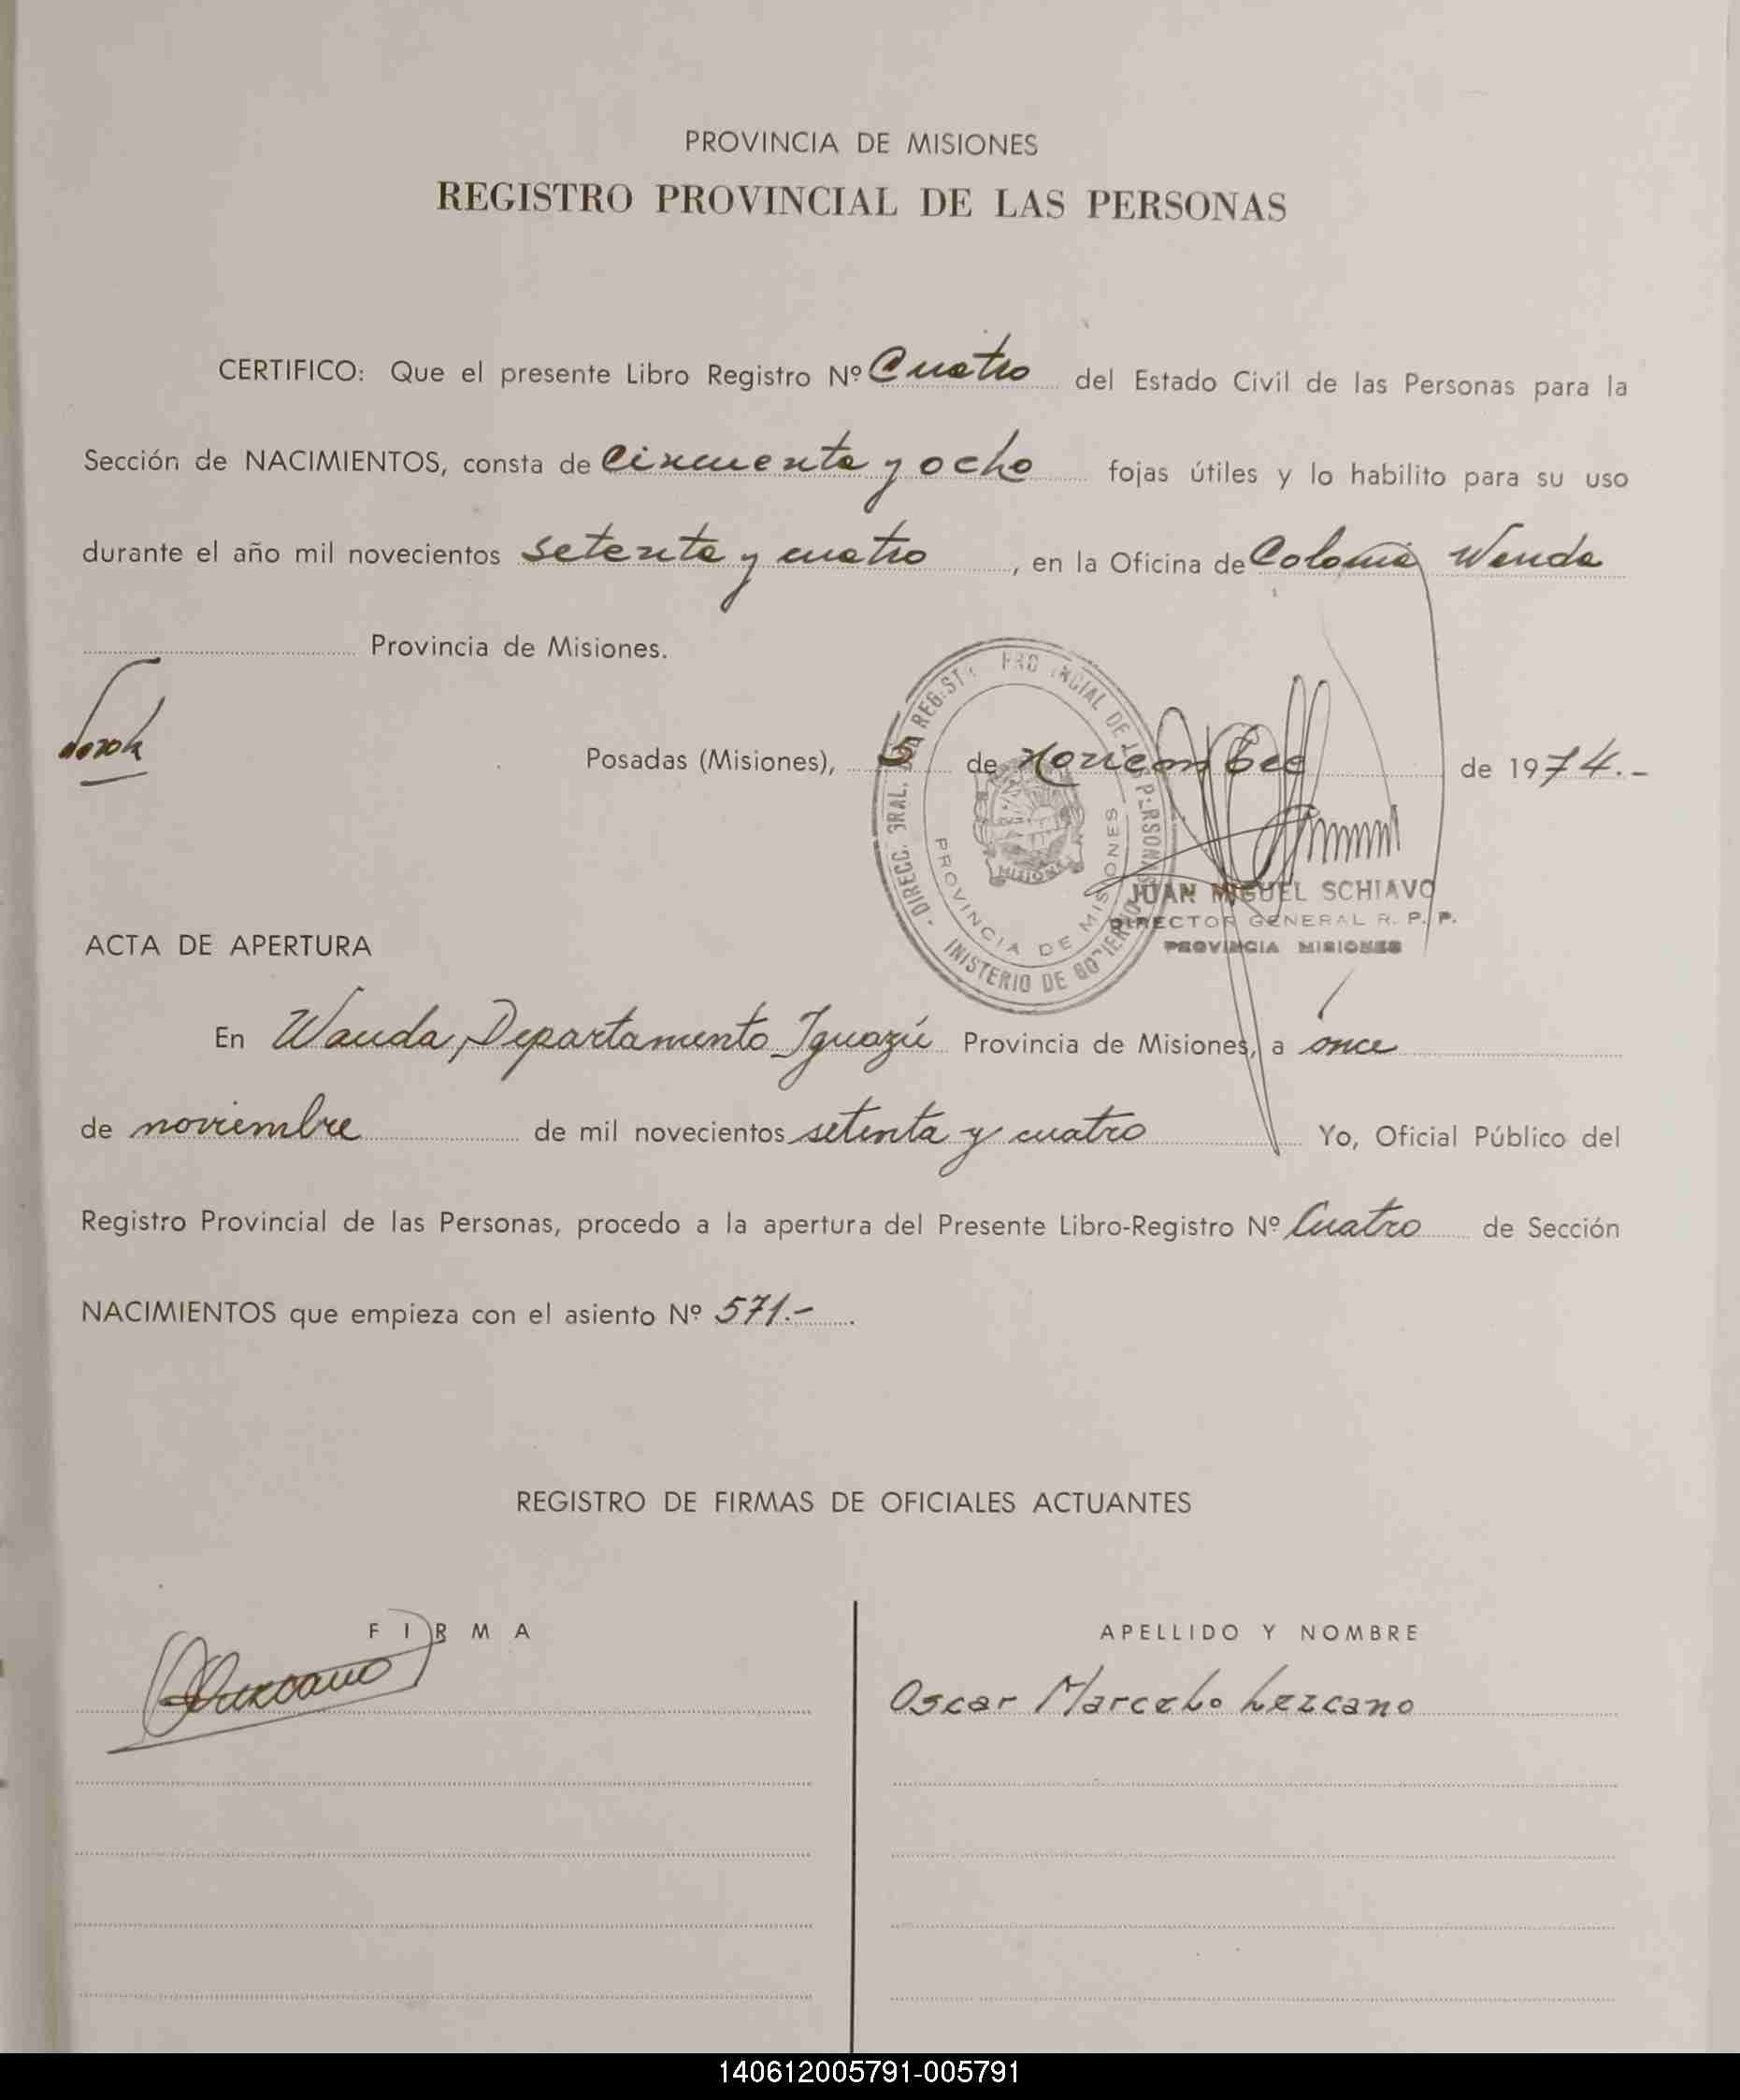 PROVINCIA DE MISIONES
REGISTRO PROVINCIAL DE LAS PERSONAS
CERTIFICO: Que el presente Libro Registro Nº Cuatro del Estado Civil de las Personas para la
Sección de NACIMIENTOS, consta de Cincuenta y ocho fojas útiles y lo habilito para su uso
durante el año mil novecientos setenta y cuatro, en la Oficina de Colonia Wanda
Provincia de Misiones.
Posadas (Misiones), de Noviembre de 1974.-
DIRECC. GRAL. REGIST. PROVINCIAL DE LAS PERSONAS
PROVINCIA DE MISIONES
MISIONES
MINISTERIO DE GOBIERNO
JUAN MIGUEL SCHIAVO
DIRECTOR GENERAL R. P. P.
PROVINCIA MISIONES
ACTA DE APERTURA
En Wanda, Departamento Iguazú Provincia de Misiones, a once
de noviembre de mil novecientos setenta y cuatro Yo, Oficial Público del
Registro Provincial de las Personas, procedo a la apertura del Presente Libro-Registro Nº Cuatro de Sección
NACIMIENTOS que empieza con el asiento Nº 571.-
REGISTRO DE FIRMAS DE OFICIALES ACTUANTES
FIRMA
APELLIDO Y NOMBRE
Oscar Marcelo Lezcano
140612005791-005791